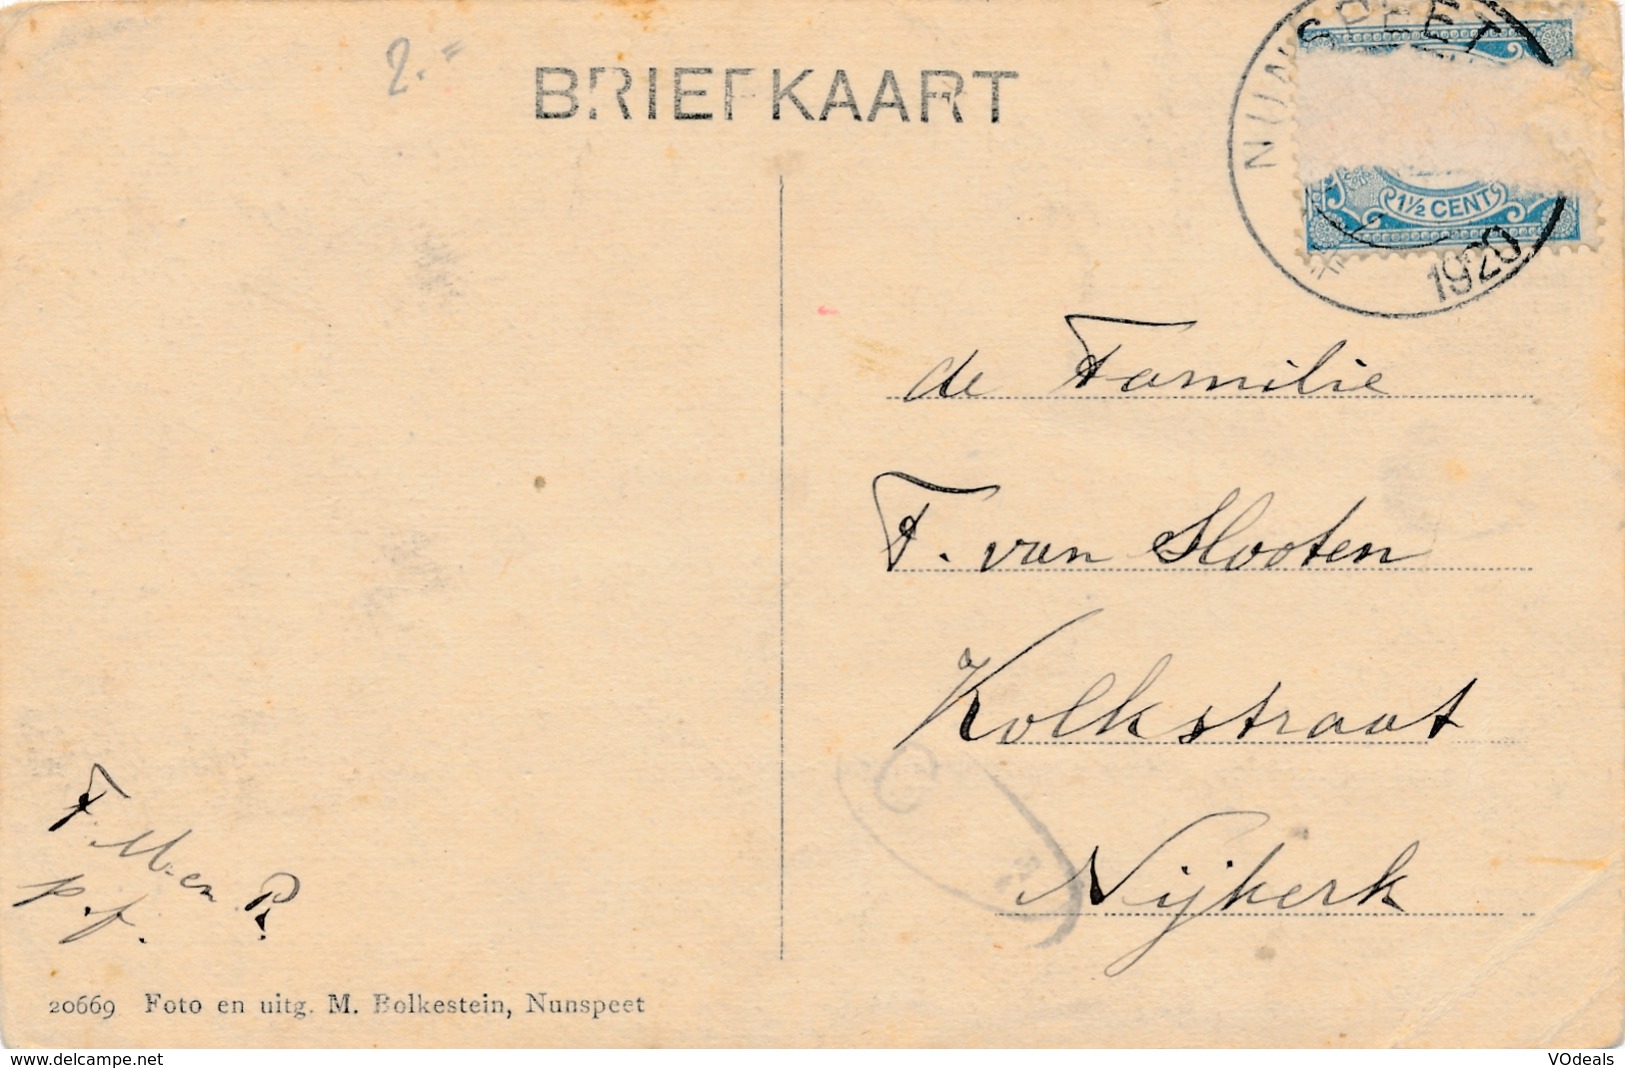 2.=
BRIEFKAART
NUNSPEET
1920
1½ CENT
de Familie
F. van Slooten
Kolkstraat
Nijkerk
F. M. en P.
p.f.
20669 Foto en uitg. M. Bolkestein, Nunspeet
www.delcampe.net
VOdeals